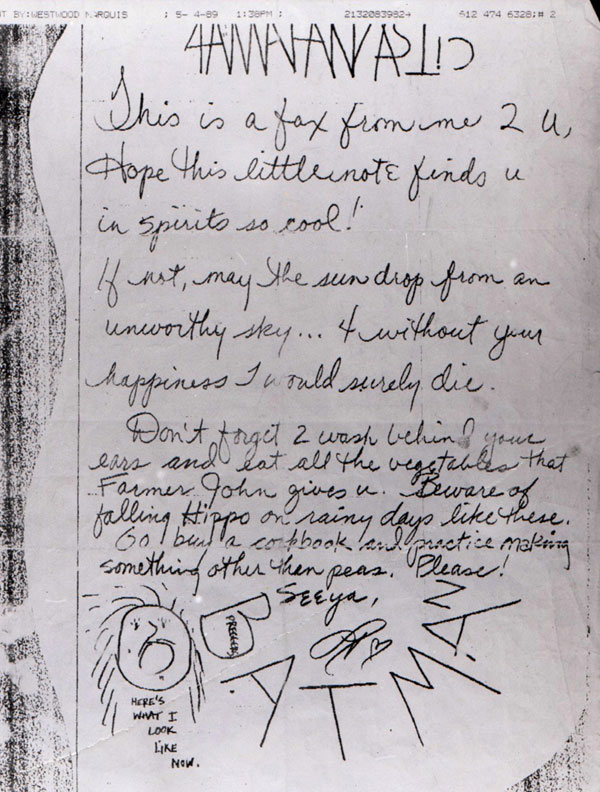 BY:WESTWOOD MARQUIS ; 5- 4-89 1:38PM ; 2132083982→ 612 474 6328;# 2
This is a fax from me 2 U,
Hope this little note finds u
in spirits so cool!
If not, may the sun drop from an
unworthy sky... 4 without your
happiness I would surely die.
Don't forget 2 wash behind your
ears and eat all the vegetables that
Farmer John gives u. Beware of
falling Hippo on rainy days like these.
Go buy a cookbook and practice making
something other then peas. Please!
SEEya,
BATMAN
HERE'S
WHAT I
LOOK
LIKE
NOW.